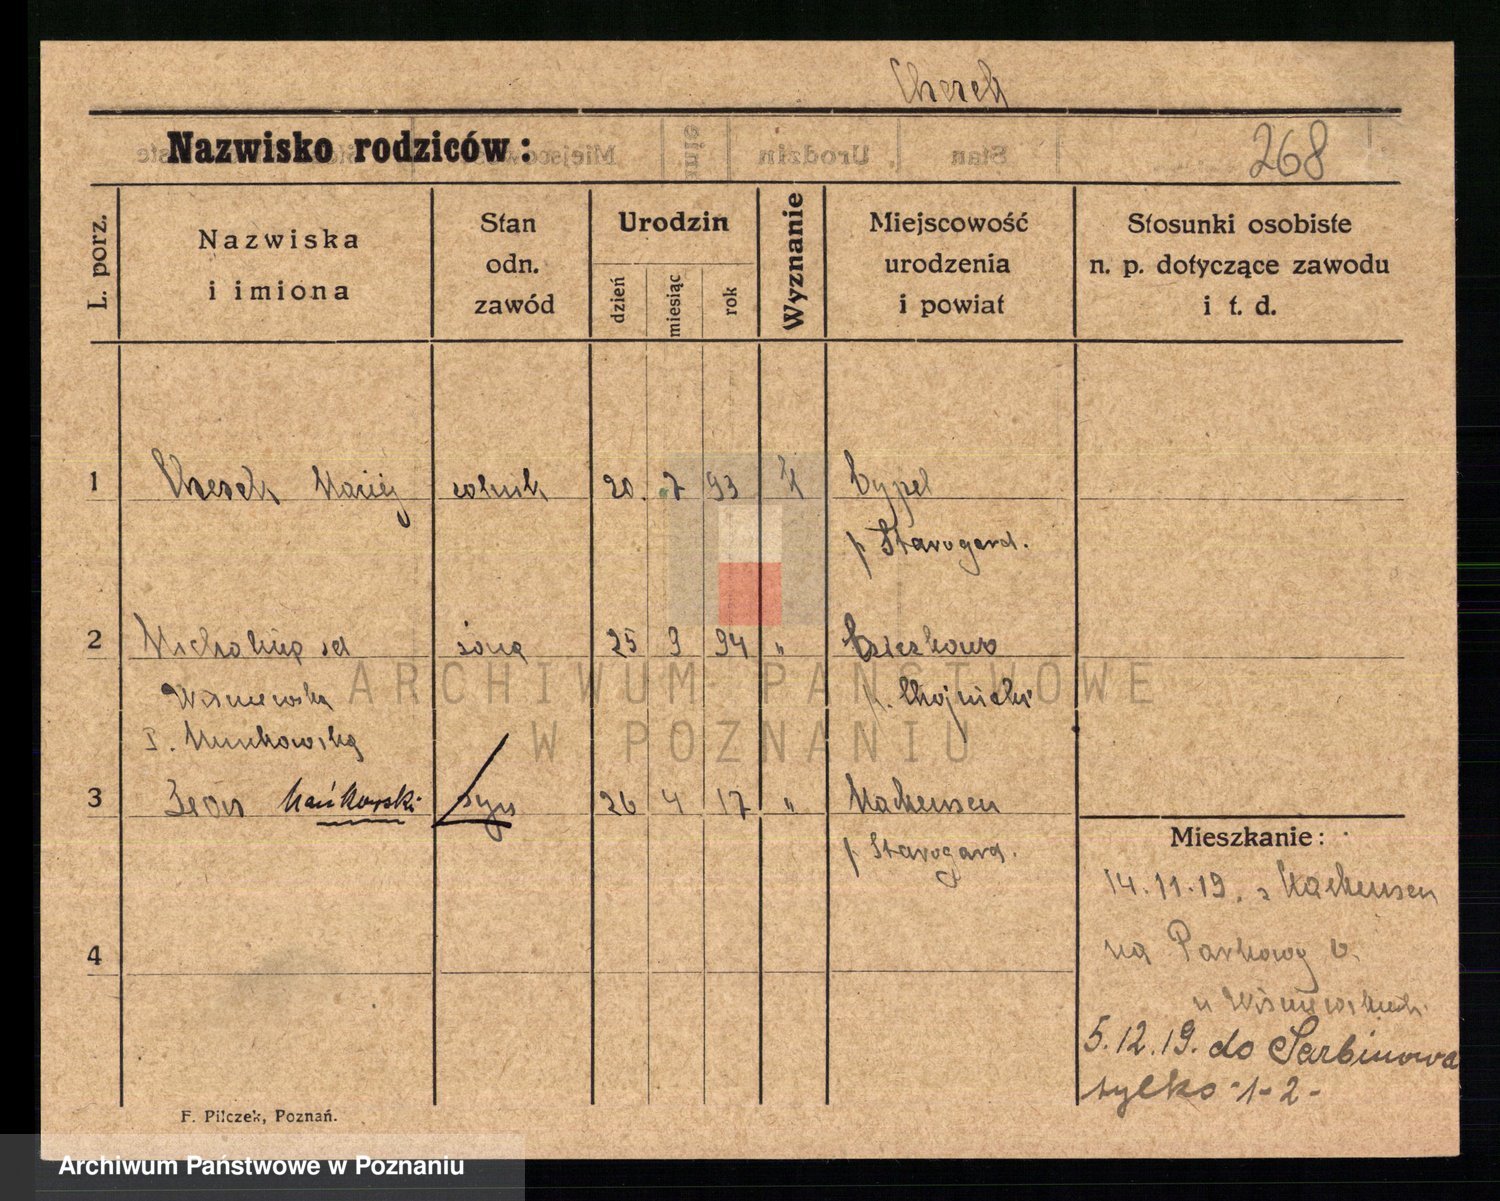 Nazwisko rodziców:
268
L. porz.
Nazwiska
i imiona
Stan
odn.
zawód
Urodzin
dzień
miesiąc
rok
Wyznanie
Miejscowość
urodzenia
i powiat
Stosunki osobiste
n. p. dotyczące zawodu
i t. d.
1 Maciej rolnik 20. 7 93
p Starogard.
2 żona 25 9 94 "
Wiśniewska
p. Chojnicki
3 Leon Mańkowski syn 26 4 17 " Mackensen
p Starogard.
Mieszkanie:
14.11.19. z Mackensen
na Parkową
u Wiśniewskich
5.12.19. do Sarbinowa
tylko -1-2-
4
F. Pilczek, Poznań.
ARCHIWUM PAŃSTWOWE
W POZNANIU
Archiwum Państwowe w Poznaniu